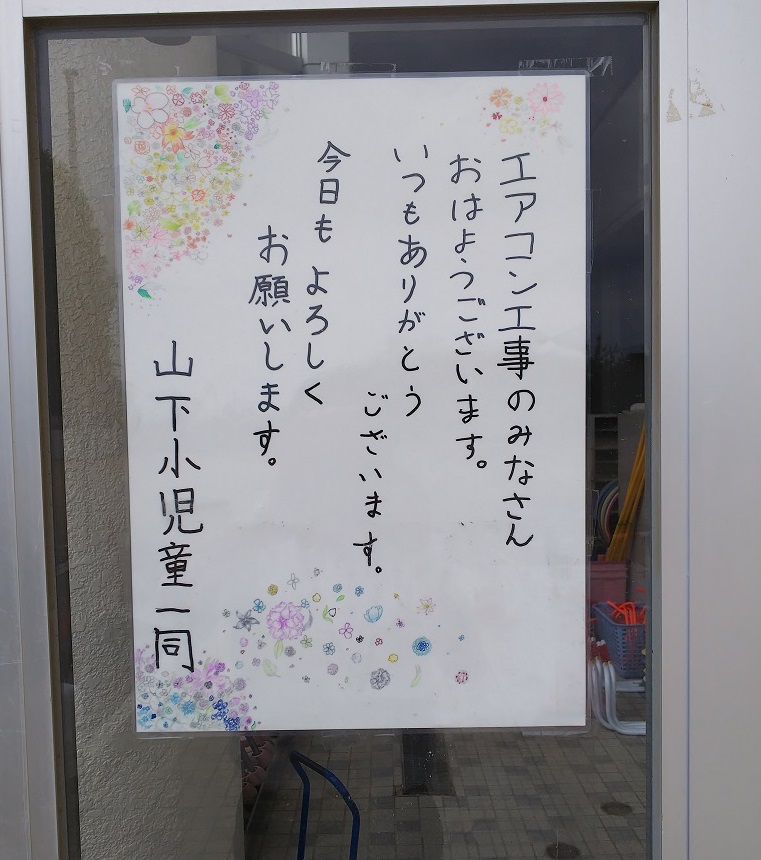 エアコン工事のみなさん
おはようございます。
いつもありがとう
ございます。
今日も よろしく
お願いします。
山下小児童一同